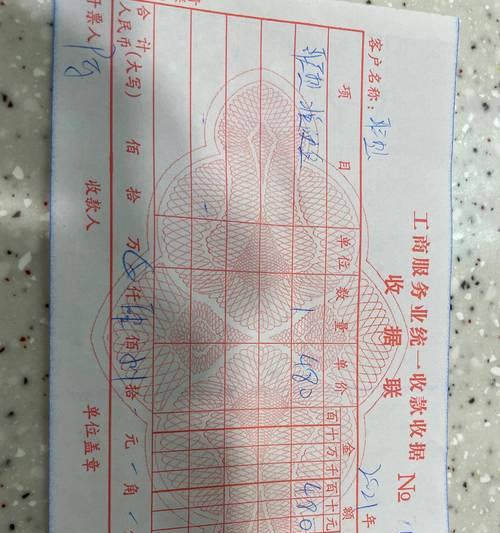 工商服务业统一收款收据 №
收据联
客户名称：
2021年
项目 单位 数量 单价 金额
百十万千百十元
1 480 480
合计
人民币(大写) 佰 拾 万 ⊗ 仟 肆 佰 捌 拾 - 元 - 角
开票人 收款人 单位盖章